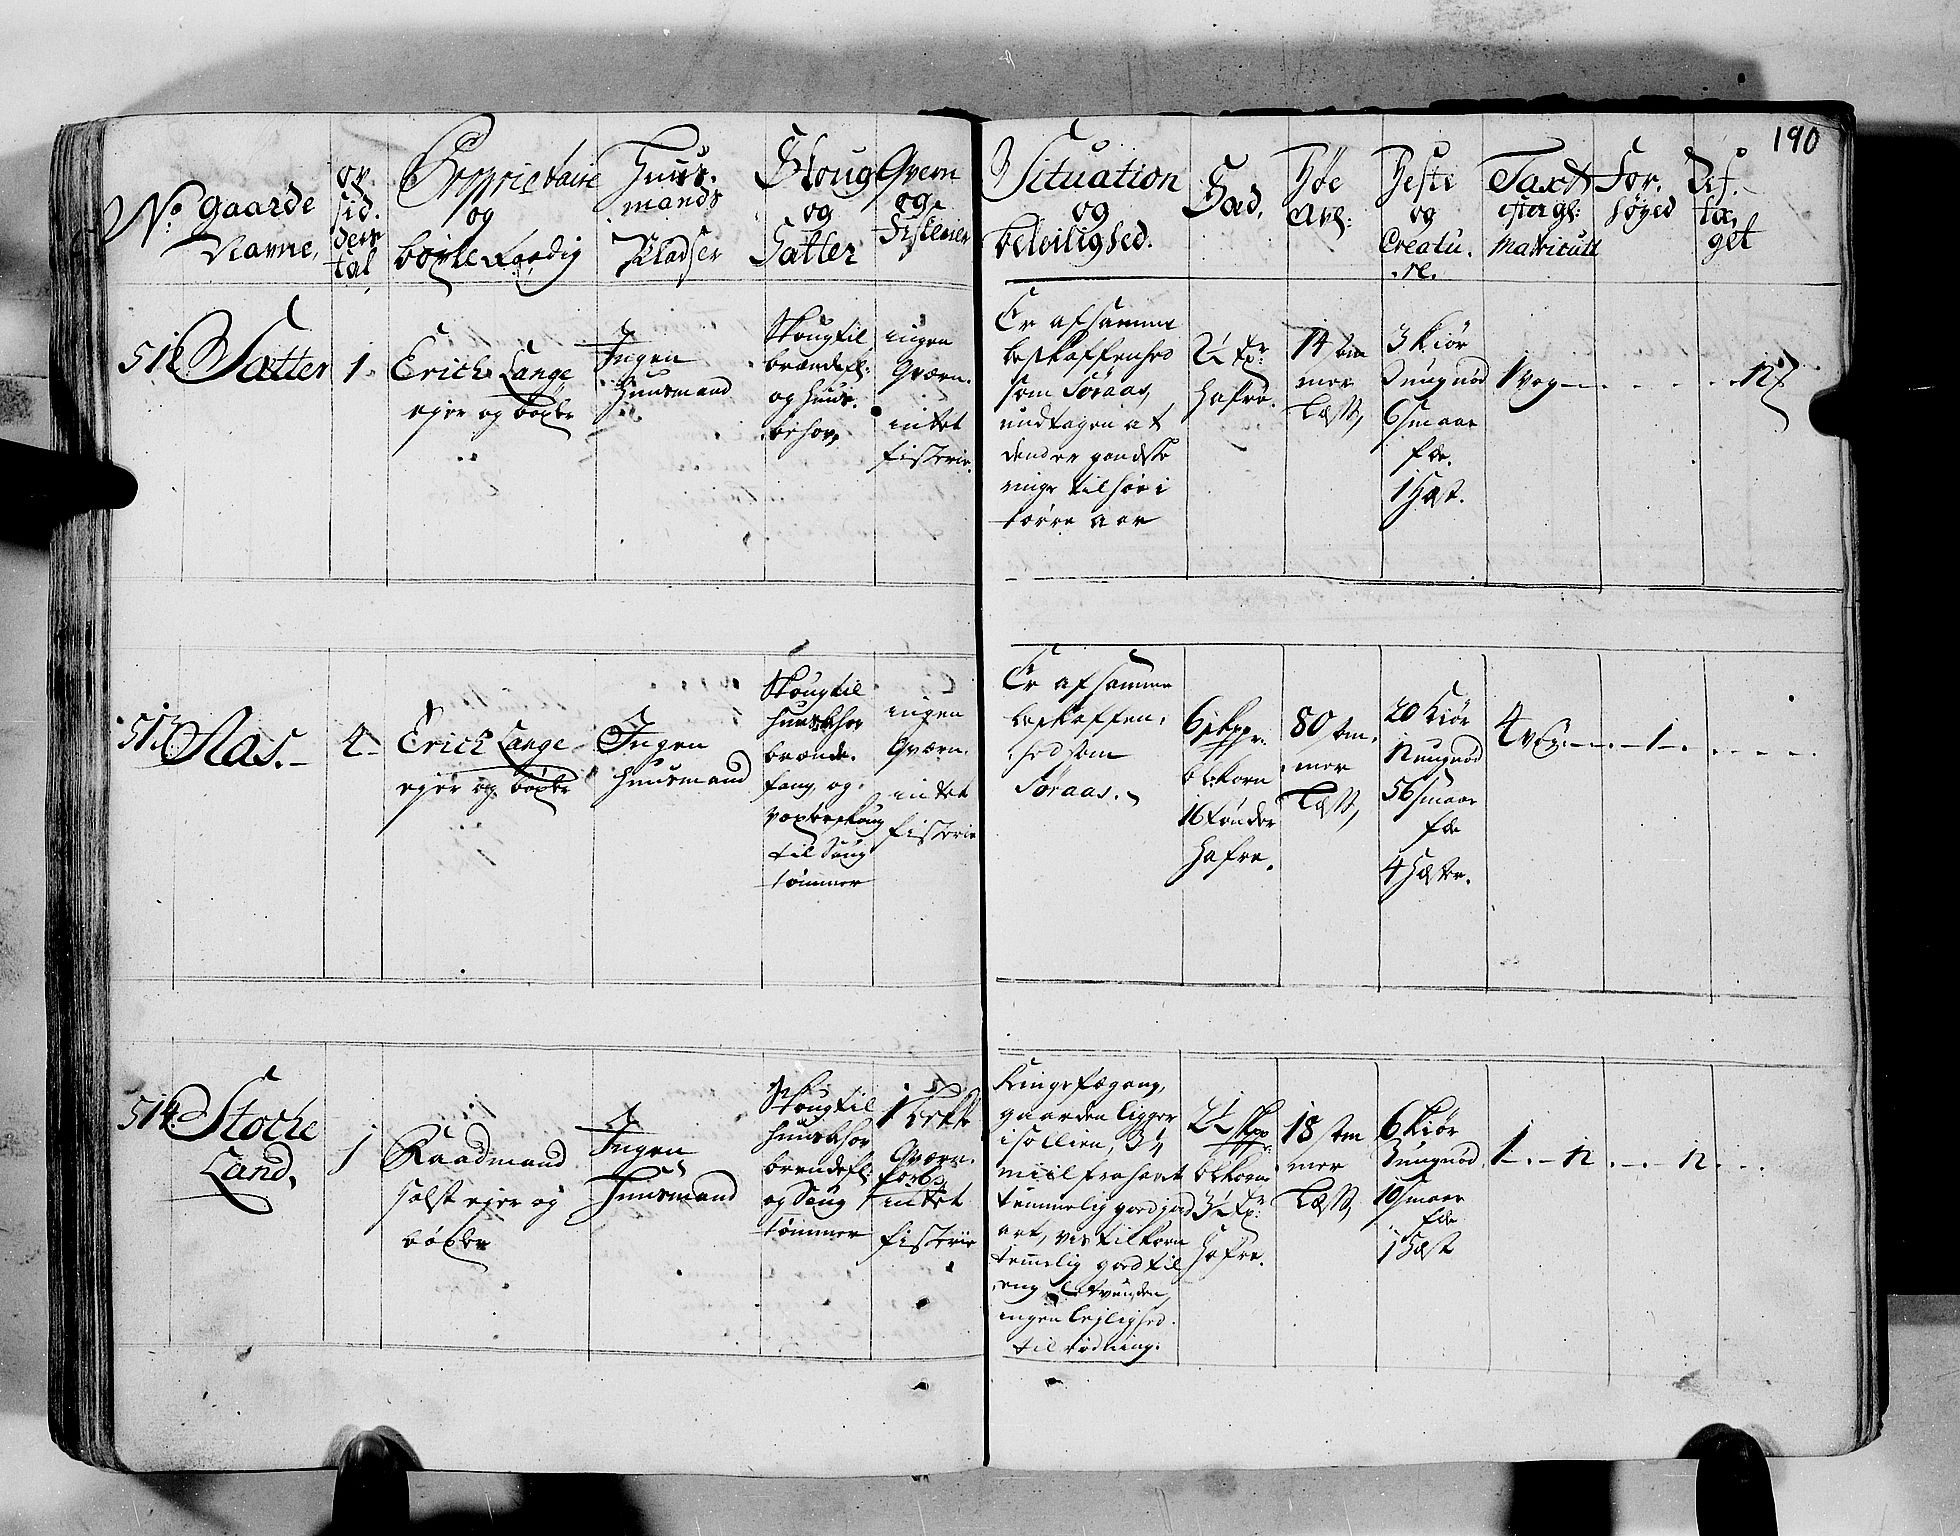 190
No.
gaarde
Navne,
op
sid.
ders
tal
Proprietaire
og
böxle Raadig
Huus.
mands
Pladser
Skoug
og
Sætter
Qvern
og
Fiskerier
Situation
og
beleilighed.
Sæd,
Høe
avl:
Heste
og
Creatu.
re.
Taxt
efter gl:
Matricull
For.
høyed
Af.
ta.
get
512
Sætter
1
Erich Lange
ejer og böxler
Ingen
Huusmand
Skoug til
brændef:
og Huus.
behov,
ingen
Qværn.
intet
fiskerie.
Er af samme
beskaffenhed
som Søraas,
undtagen at
dend er gandske
ringe til høe i
tørre aar
2½ tr:
Hafre.
14 Som
mer
Læss,
3 Kiør
2 ungnød
6 smaae
fæe.
1 Hæst.
1 vog
513.
Aas.
4
Erich Lange
ejer og böxler
Ingen
Huusmand
Skoug til
Huusbehov
brænde.
fang, og
til Saug
tømmer
ingen
Qværn.
intet
fiskerie
Er af samme
beskaffen,
hed som
Søraas.
6 skppr.
blkorn
16 tønder
Hafre.
80 som.
mer
Læss,
20 Kiør
12 ungnød
56 smaae
fæe
4 Hæster.
4 vog.
1
514.
Stocke
Land,
1
Raadmand
selv ejer og
böxler
Ingen
Huusmand
Skoug til
Huusbehov
brendef:
og Saug
tømmer
1
Qværn.
intet
fiskerie
Ringe fægang,
gaarden ligger
i sollien, 3/4
miil fra havet
temmelig goed jord
art, vis til korn
temelig goed til
eng
ingen lejlighed
til rødning.
2½ skpp
blkorn
3½ tr:
Hafre.
18 som
mer
Læss,
6 Kiør
3 ungnød
10 smaae
fæe
1 Hæst
1